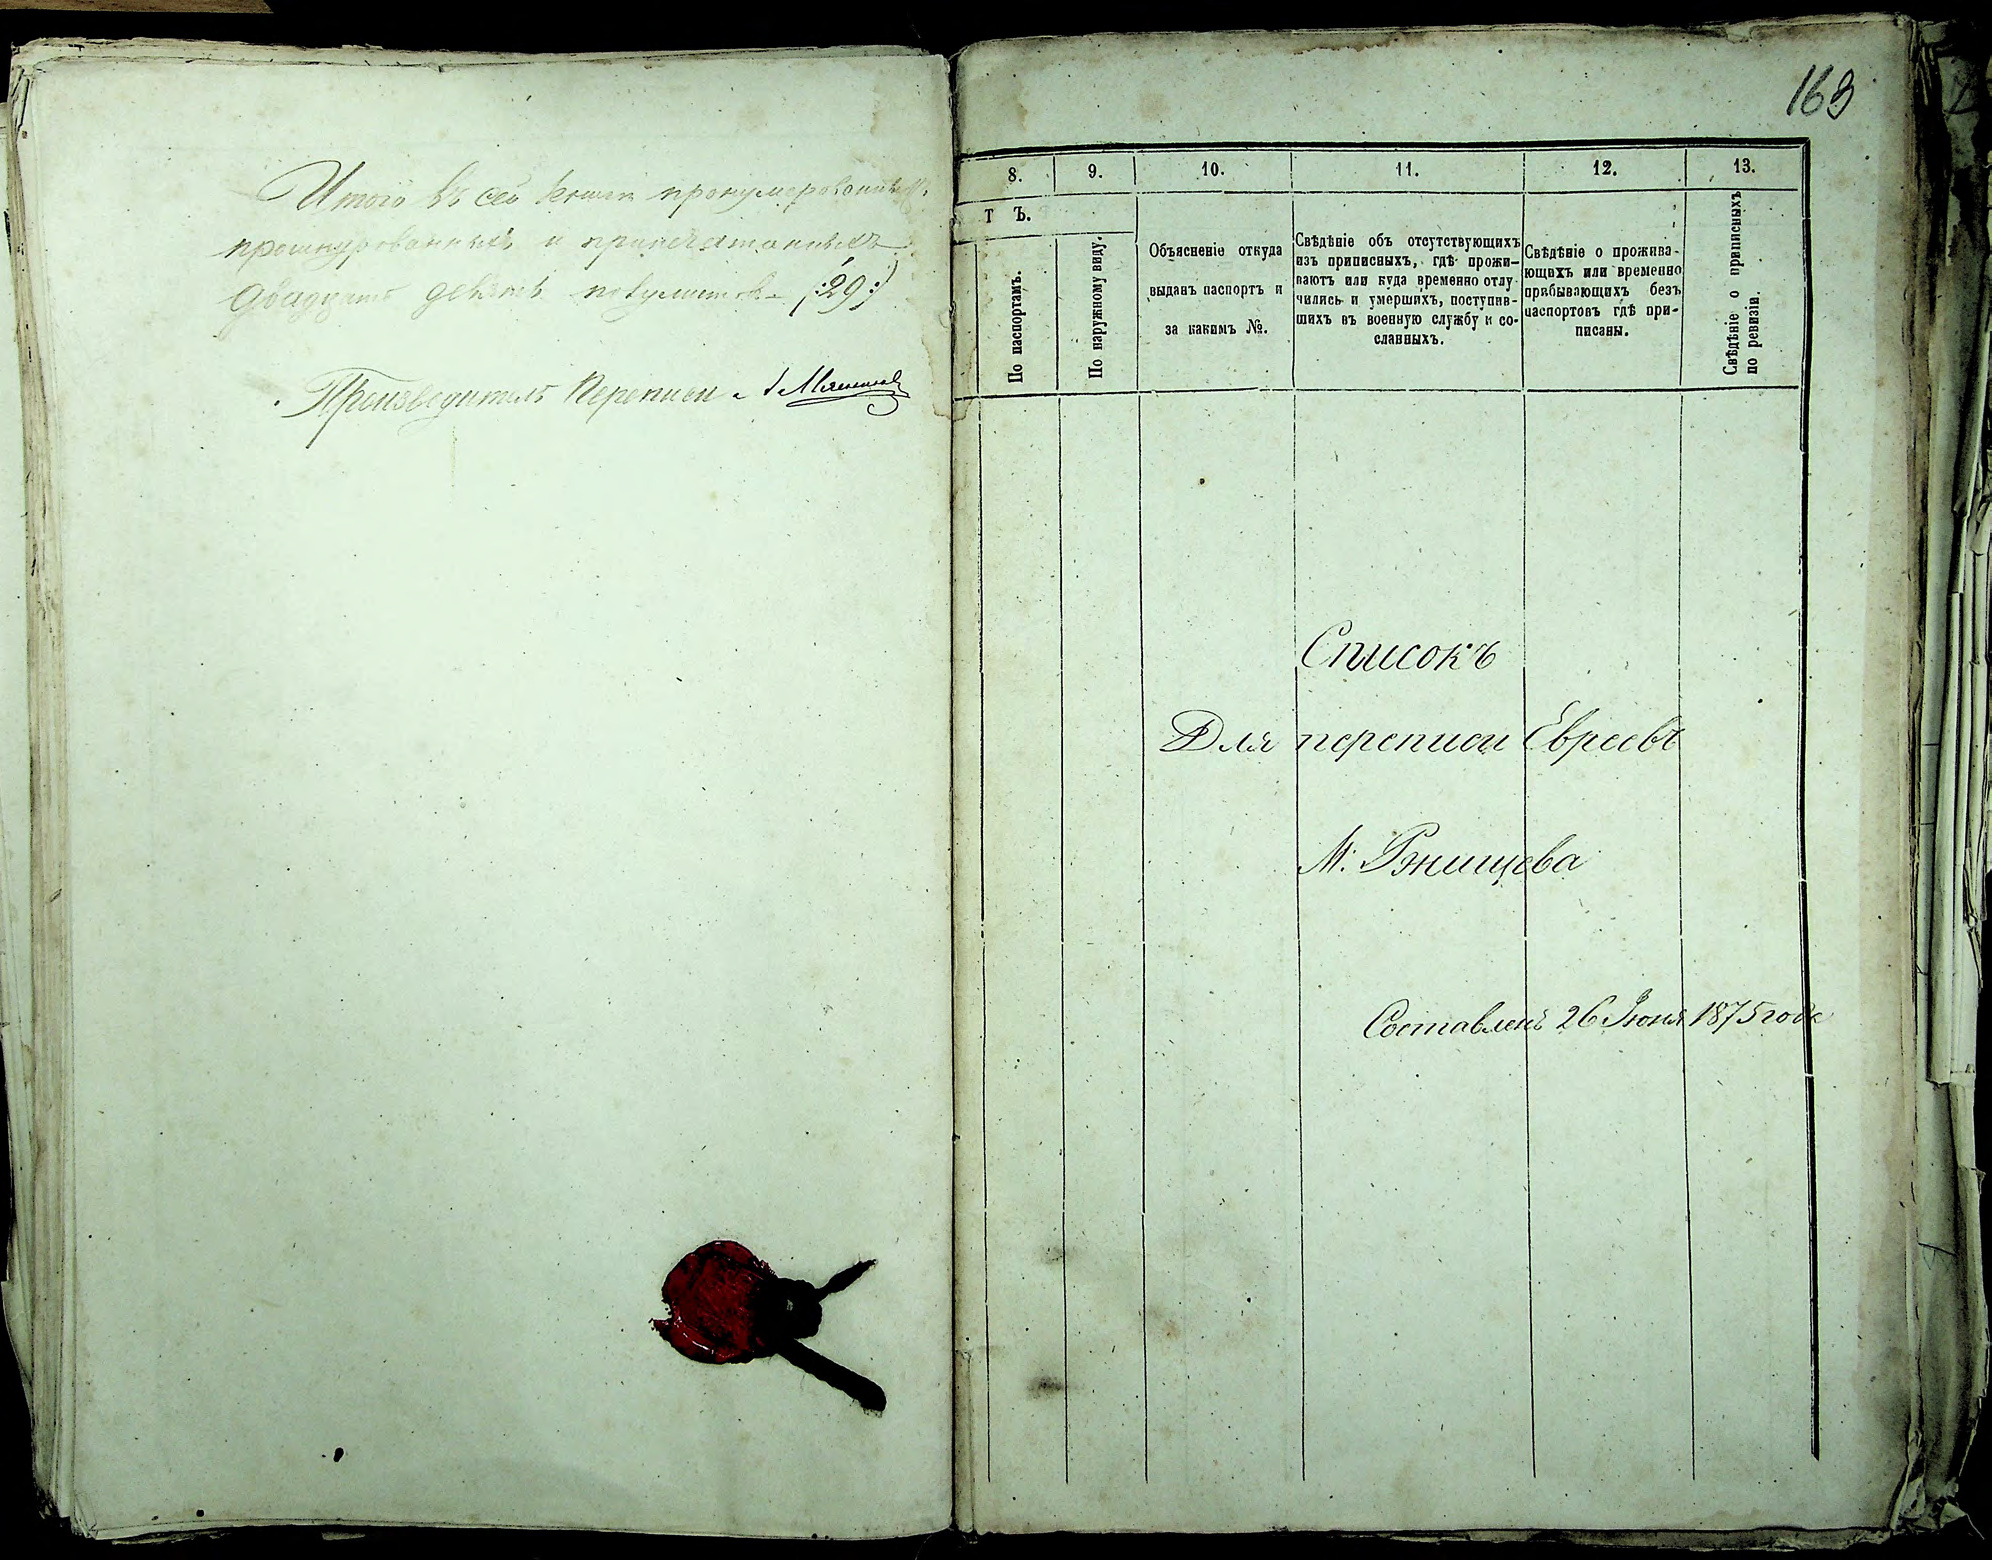 Итого въ сей книги пронумерованныхъ
прошнурованныхъ и припечатанныхъ
двадцать девять полулистовъ (:29:)
Производитель Переписи
163
8.
9.
10.
11.
12.
13.
Т Ъ.
По паспортамъ.
По наружному виду.
Объясненіе откуда
выданъ паспортъ и
за какимъ №.
Свѣдѣніе объ отсутствующихъ
изъ приписныхъ, гдѣ прожи-
ваютъ или куда временно отлу-
чились и умершихъ, поступив-
шихъ въ военную службу и со-
сланныхъ.
Свѣдѣніе о прожива-
ющихъ или временно
прибывающихъ безъ
паспортовъ гдѣ при-
писаны.
Свѣдѣніе о приписныхъ
по ревизіи.
Списокъ
Для переписи Евреевъ
М. Ржищева
Составленъ 26 Іюня 1875 года